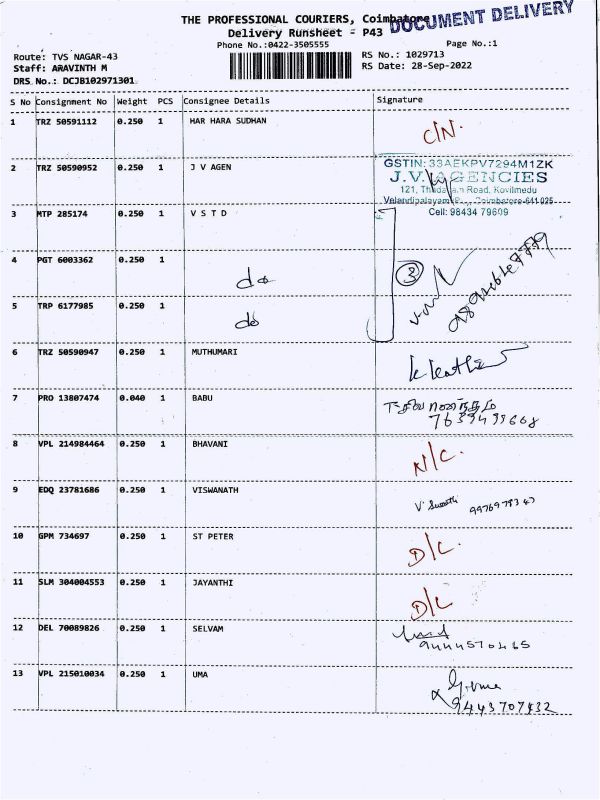 THE PROFESSIONAL COURIERS, Coimbatore
DOCUMENT DELIVERY
Delivery Runsheet - P43
Phone No.:0422-3505555
Page No.:1
Route: TVS NAGAR-43
RS No.: 1029713
Staff: ARAVINTH M
RS Date: 28-Sep-2022
DRS No.: DCJB102971301
S No Consignment No Weight PCS Consignee Details Signature
1 TRZ 50591112 0.250 1 HAR HARA SUDHAN
C/N.
2 TRZ 50590952 0.250 1 J V AGEN
GSTIN: 33AEKPV7294M1ZK
J.V. AGENCIES
121, Road, Kovilmedu
Velandipalayam Coimbatore-641 025
Cell: 98434 79609
3 MTP 285174 0.250 1 V S T D
4 PGT 6003362 0.250 1 do 3
5 TRP 6177985 0.250 1 do
6 TRZ 50590947 0.250 1 MUTHUMARI
7 PRO 13807474 0.040 1 BABU
8 VPL 214984464 0.250 1 BHAVANI N/C.
9 EDQ 23781686 0.250 1 VISWANATH
10 GPM 734697 0.250 1 ST PETER D/C.
11 SLM 304004553 0.250 1 JAYANTHI D/C
12 DEL 70089826 0.250 1 SELVAM
9444570465
13 VPL 215010034 0.250 1 UMA
9443707432